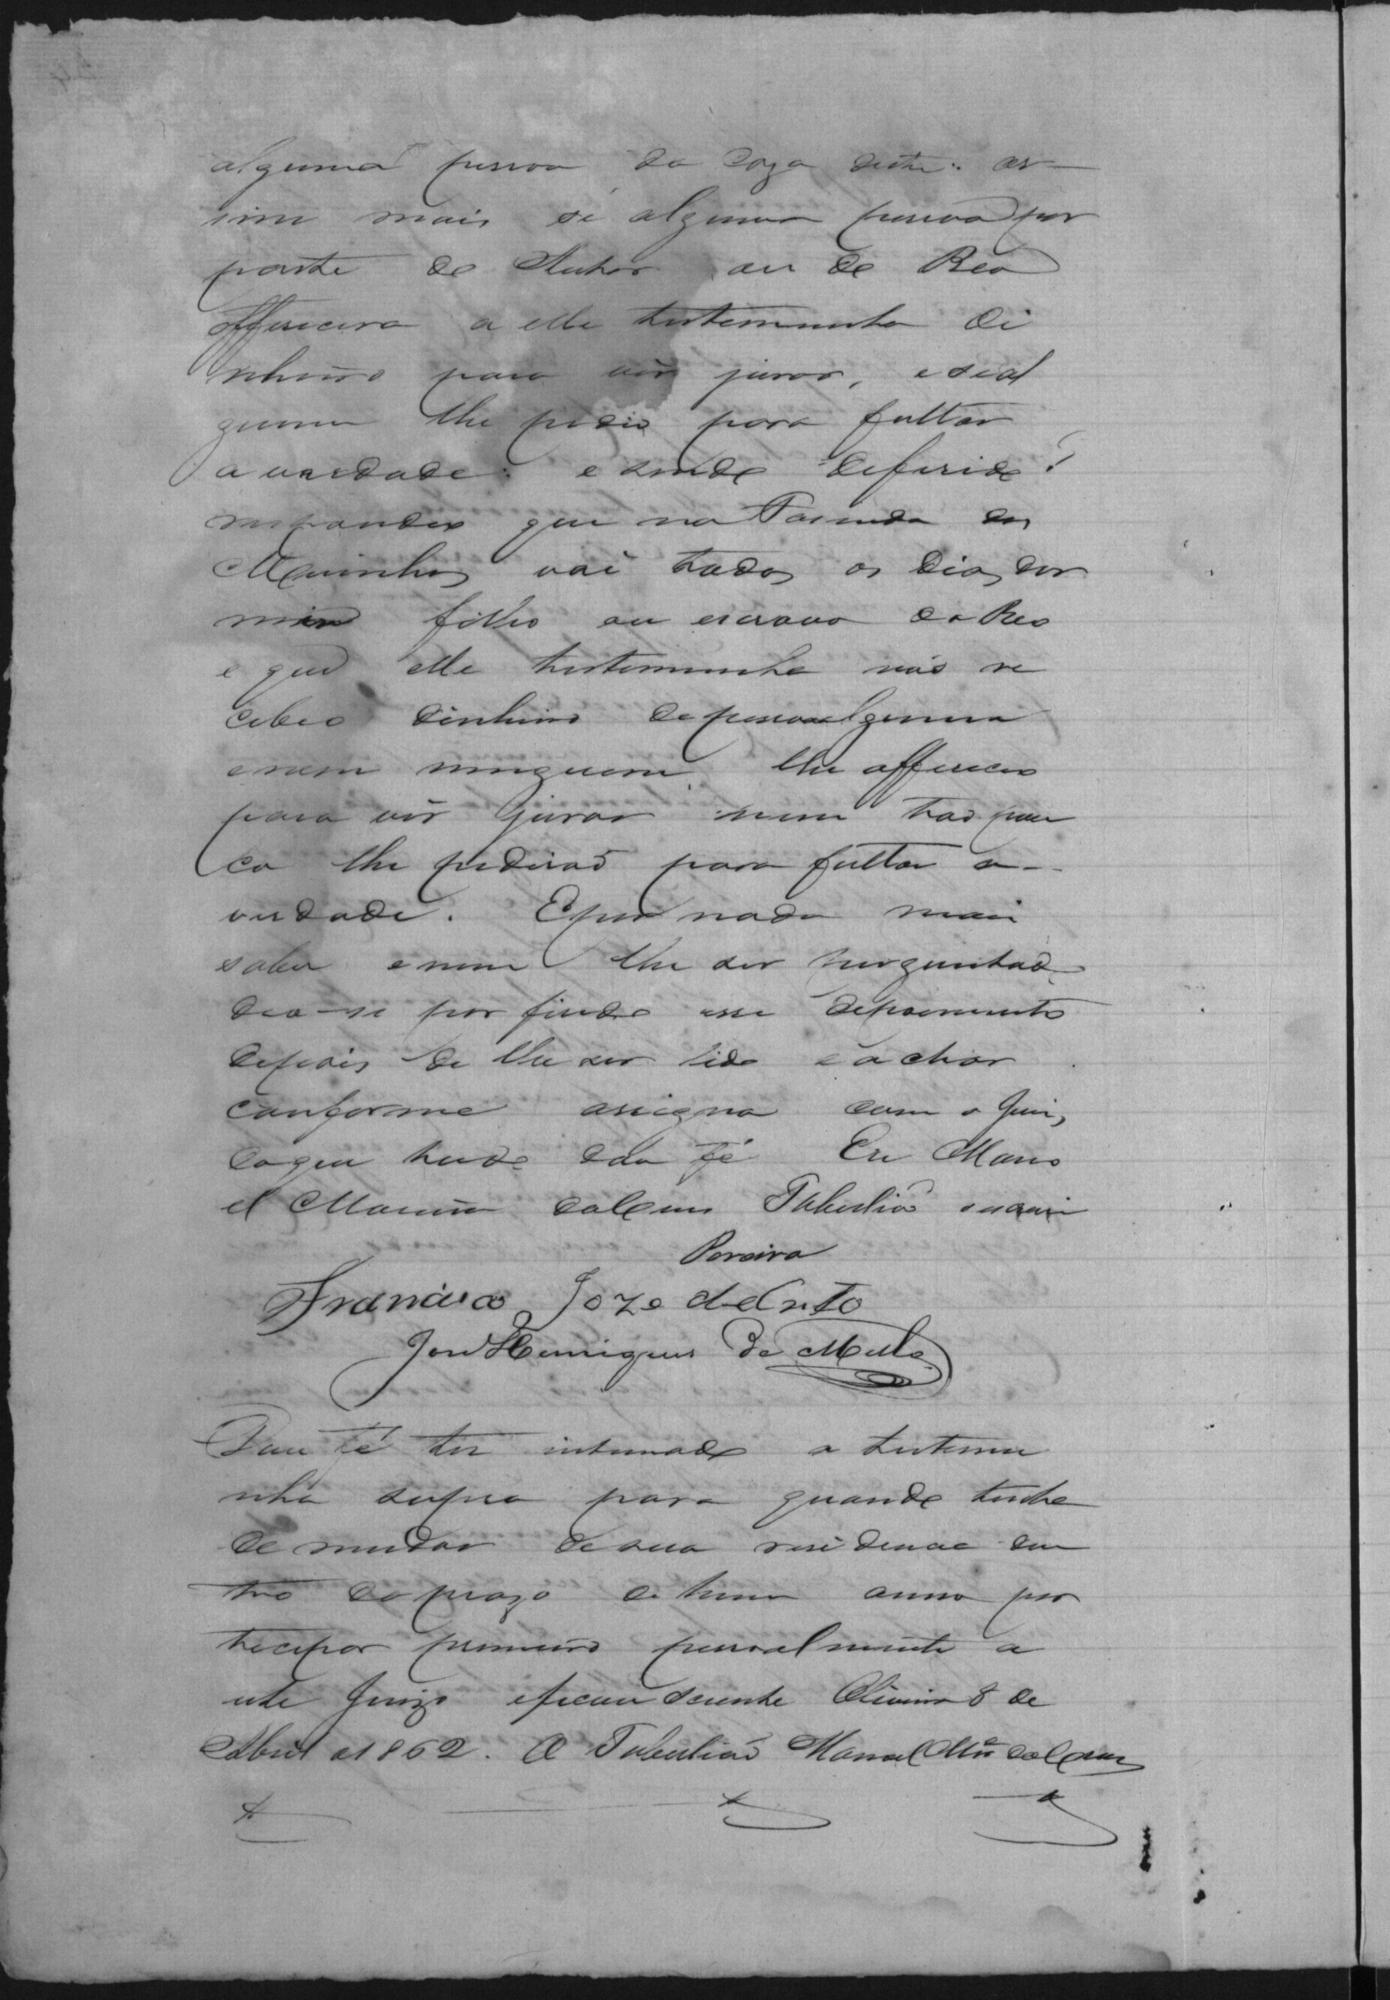 alguma pessoa da caza deste: as-
sim mais si alguma pessoa por
parte do Author ou do Reo
offerecera a elle testemunha di
nheiro para vir jurar, e si al
guem lhe pedio para faltar
a verdade: e sendo deferido!
respondeo que na Fazenda dos
Marinhos vai todos os dias dor
mir filho ou escravo do Reo
e que elle testemunha não re
cebeo dinheiro de pessoa alguma
e nem ninguem lhe offereceo
para vir jurar nem tão pou
co lhe pedirão para faltar a-
verdade. E por nada mais
saber e nem lhe ser perguntado
deo-se por findo esse depoimento
depois de lhe ser lido e achar
conforme assigna com o Juiz,
do que tudo dou fé Eu Mano
el Tabelião escrevi
Pereira
Francisco Joze de Brito
José Henriques de Mello
Dou fé ter intimado a testemu
nha supra para quando tenha
de mudar de sua residencia den
tro do prazo de hum anno par
ticipar primeiro pessoalmente a
este Juizo e ficou sciente Oliveira 8 de
Abril de 1862. O Tabelião Manoel